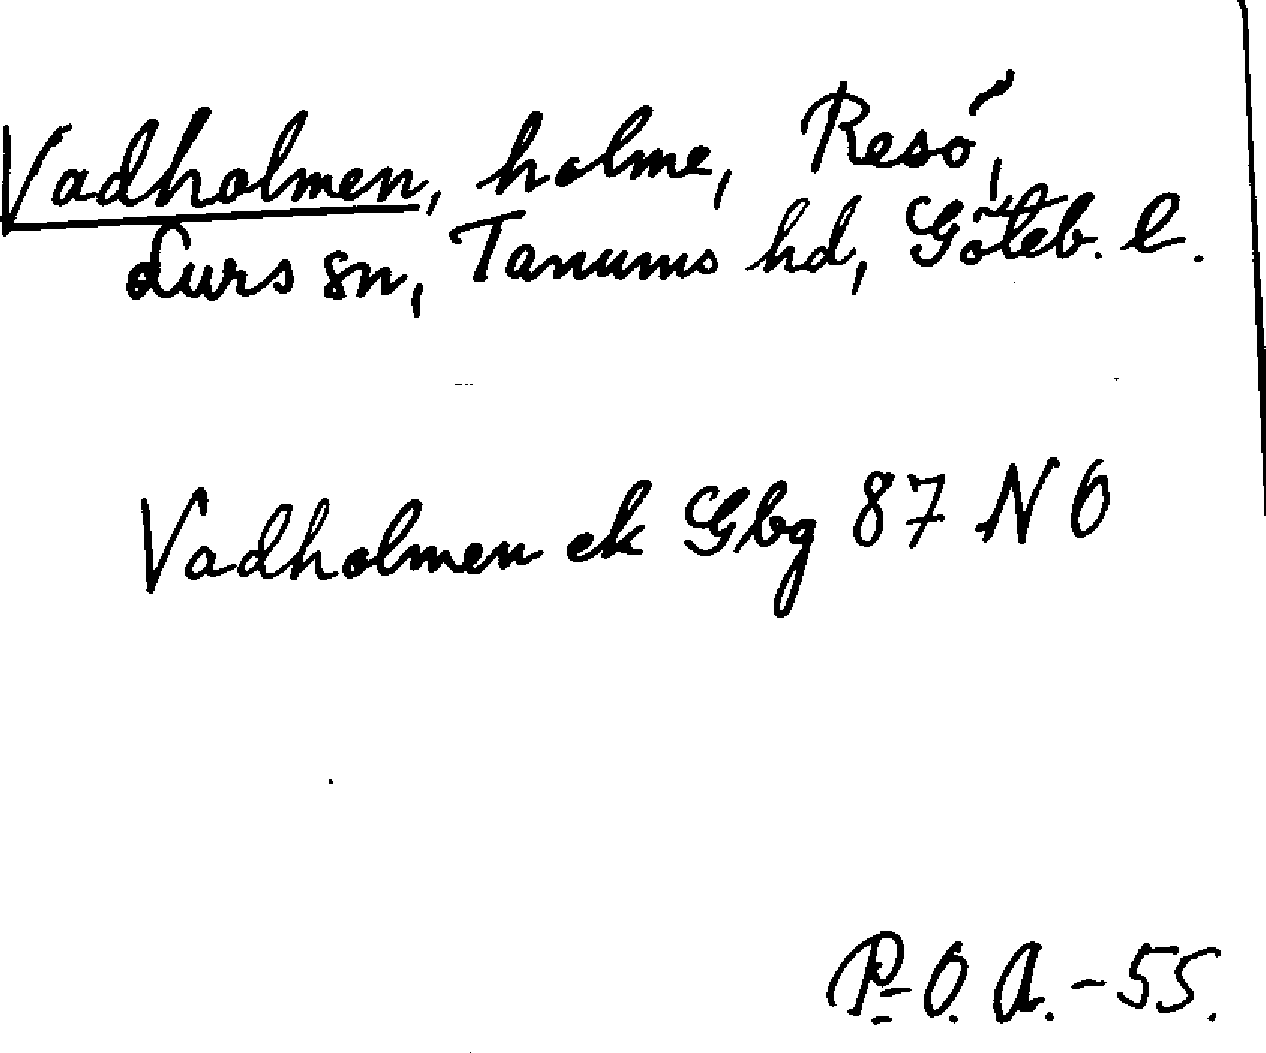 Vadholmen, holme, Resö,
Lurs sn, Tanums hd, Göteb. l.
Vadholmen ek Gbg 87 NO
P-O. A. -55.